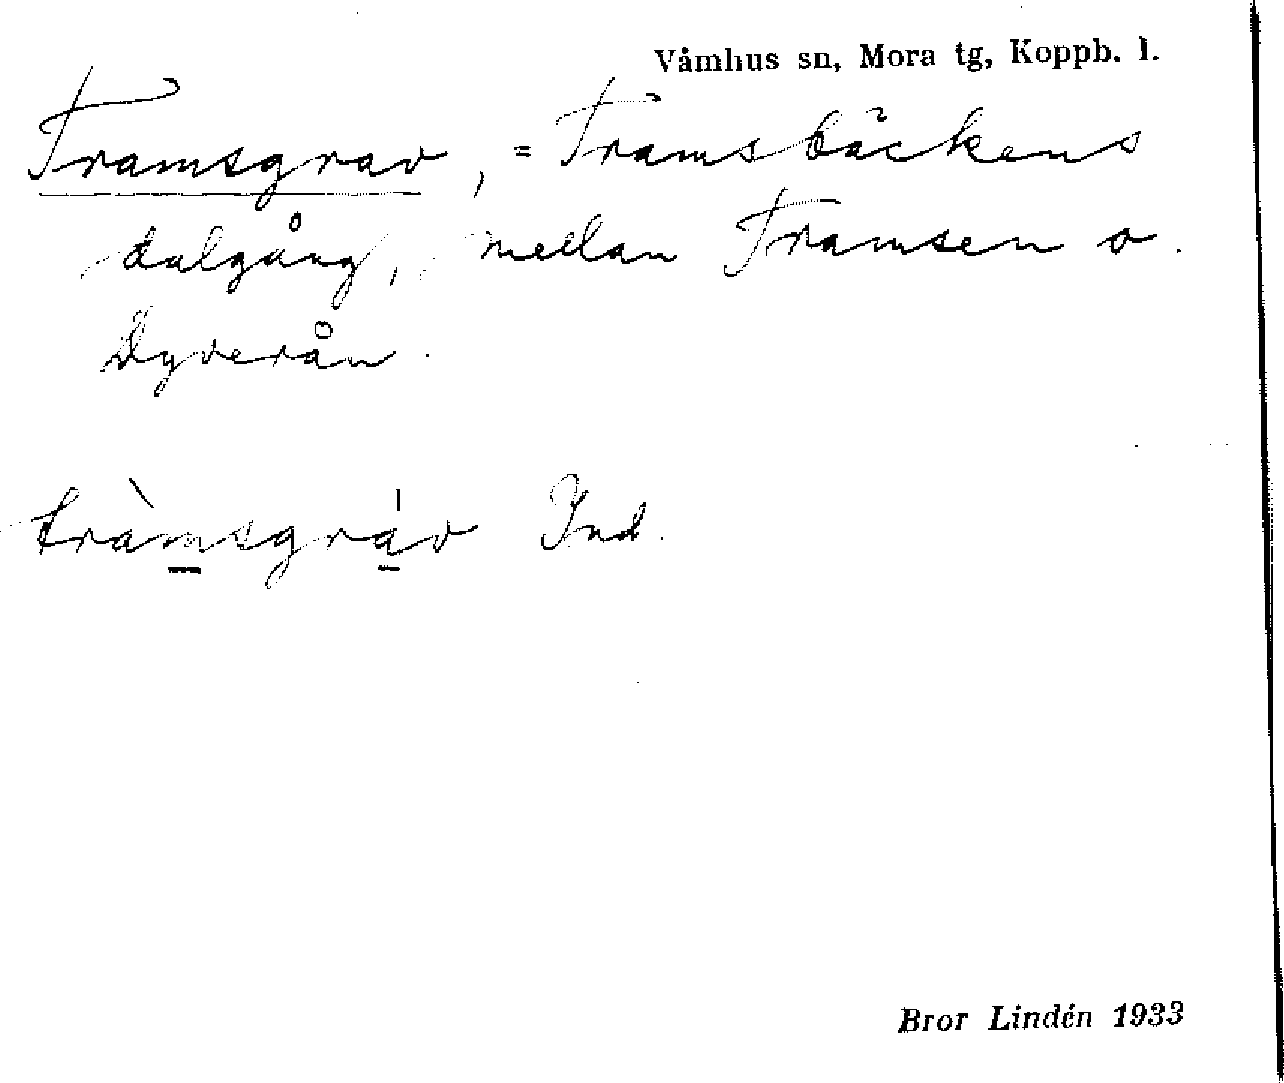 Våmhus sn, Mora tg, Koppb. l.
Tramsgrav, = Tramsbäckens
dalgång, mellan Tramsen o.
Dyverån.
tràmsgráv Ind.
Bror Lindén 1933